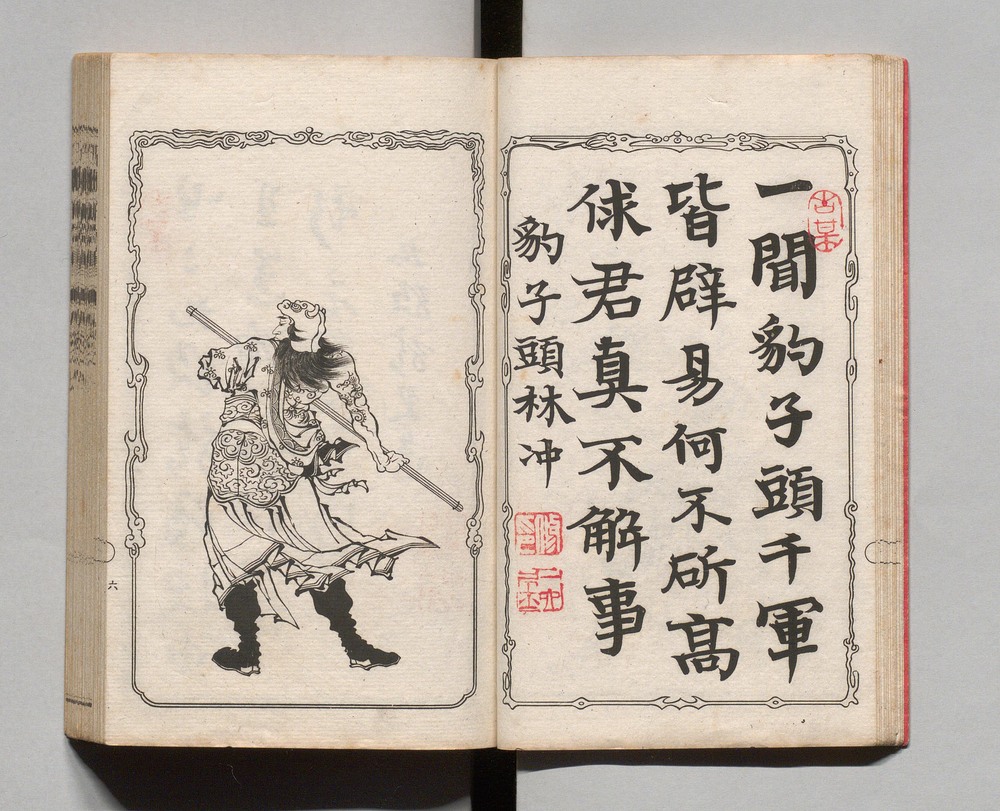 一聞豹子頭千軍
皆辟易何不斫高
俅君真不解事
豹子頭林冲
六